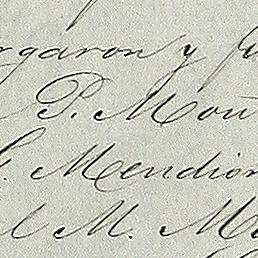 rgaron y fu
P. Mou
G. Mendion
l M. Ma